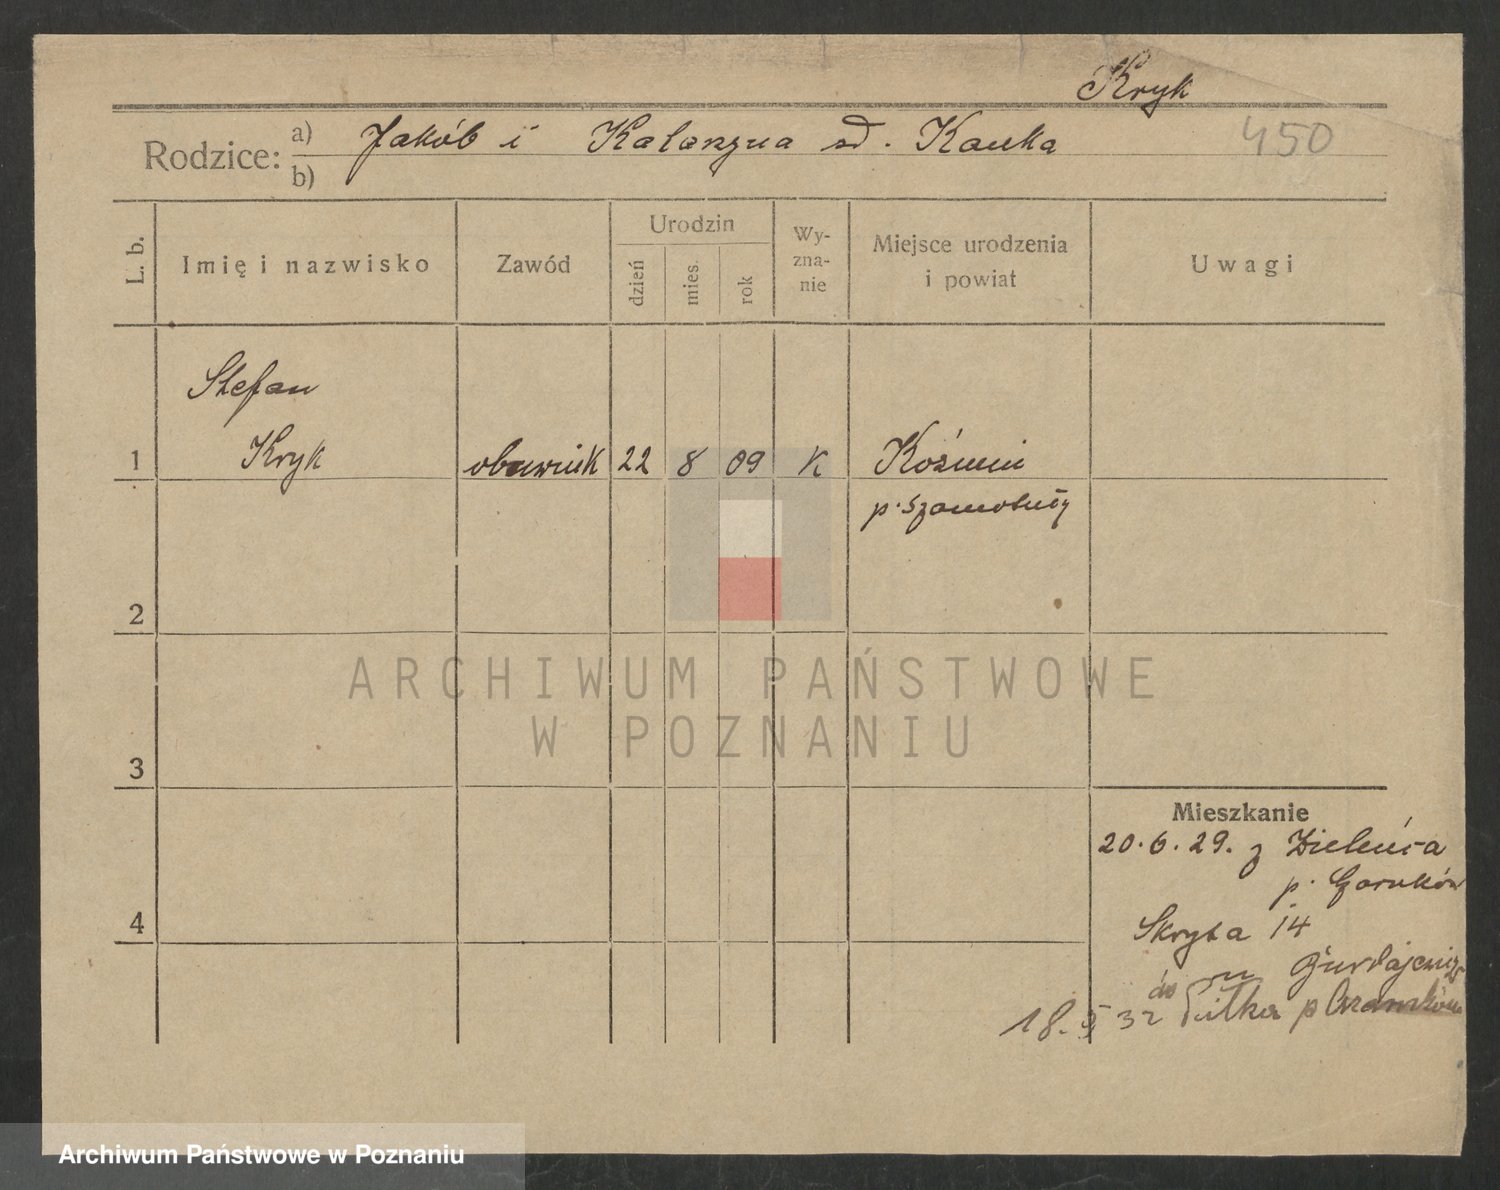 Kryk
Rodzice: a) Jakób i Katarzyna sd. Kauka
b)
450
L. b.
Imię i nazwisko
Zawód
Urodzin
dzień
mies.
rok
Wy-
zna-
nie
Miejsce urodzenia
i powiat
Uwagi
Stefan
1 Kryk obuwnik 22 8 09 K Koźmin
p. Szamotuły
2
3
4
Mieszkanie
20.6.29. z
p. Czarnków
Skryta 14
u
18. 5 32 do p Czarnków
ARCHIWUM PAŃSTWOWE
W POZNANIU
Archiwum Państwowe w Poznaniu